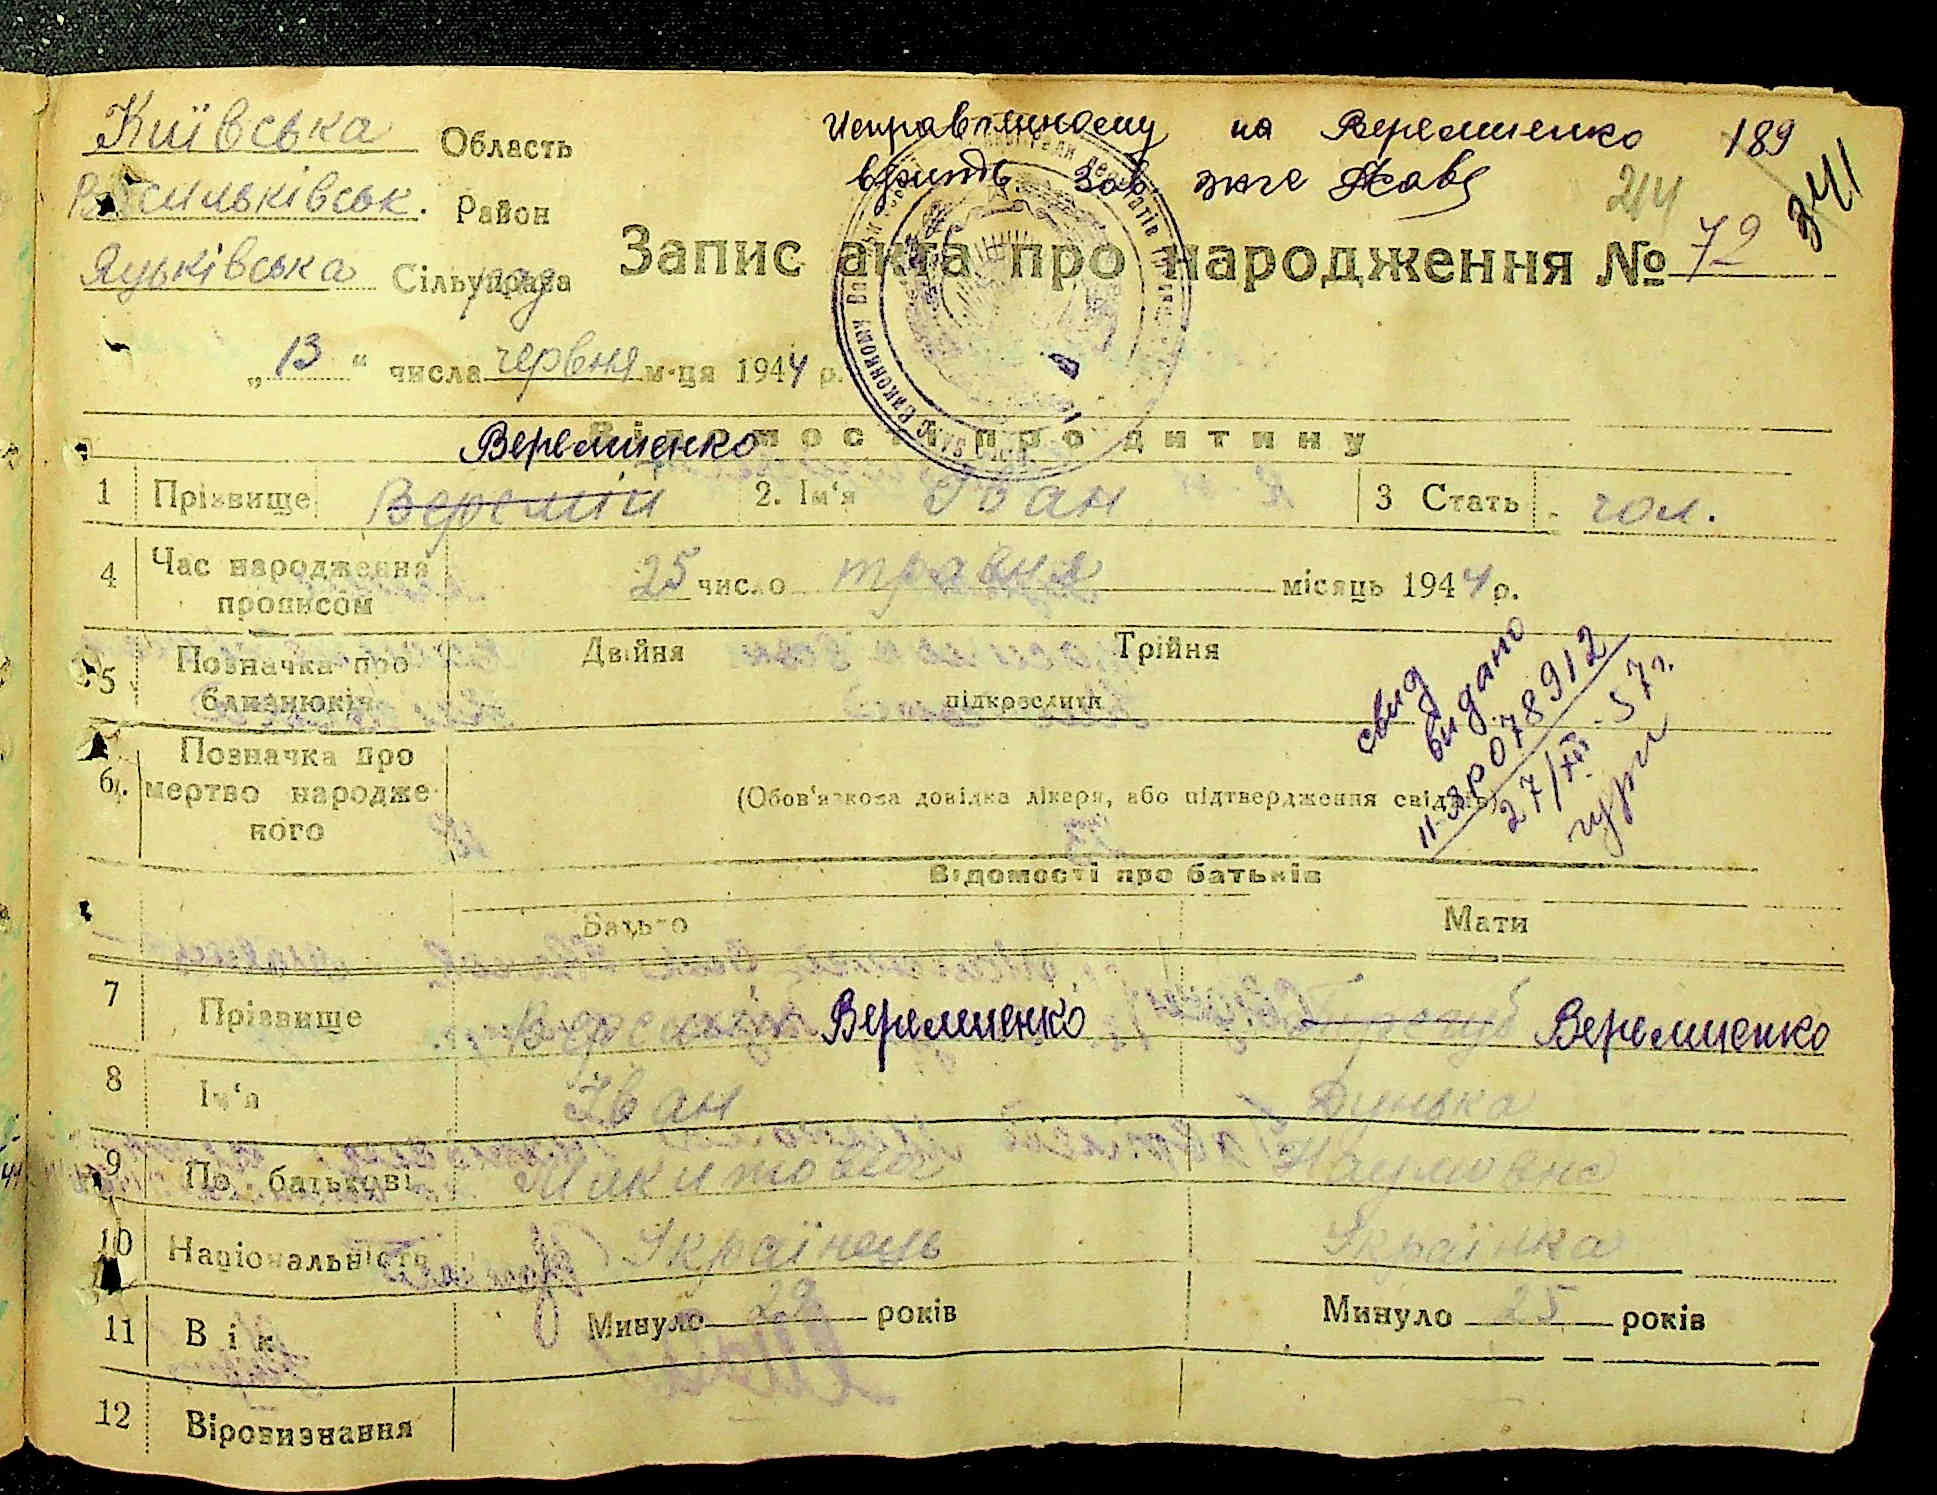 Київська Область
Васильківськ. Район
Яцьківська Сільуправа рада
Исправленному на Веремиенко
верить. Зав.
189
341
244
Запис акта про народження № 72
„13“ числа червня м-ця 1944 р.
Відомості про дитину
Веремиенко
1 Прізвище Веремій 2. Ім'я Іван 3 Стать чол.
4 Час народження прописом 25 число травня місяць 1944 р.
5 Позначка про близнюків Двійня Трійня
підкреслити
свид видано
078912
27/XII-57 г.
6. Позначка про мертво народженого (Обов'язкова довідка лікаря, або підтвердження свідків)
Відомості про батьків
Батько Мати
7 Прізвище Веремиенко Веремиенко
8 Ім'я Іван Дунька
9 По батькові Микитович Наумовна
10 Національність Українець Українка
11 Вік Минуло 28 років Минуло 25 років
12 Віровизнання